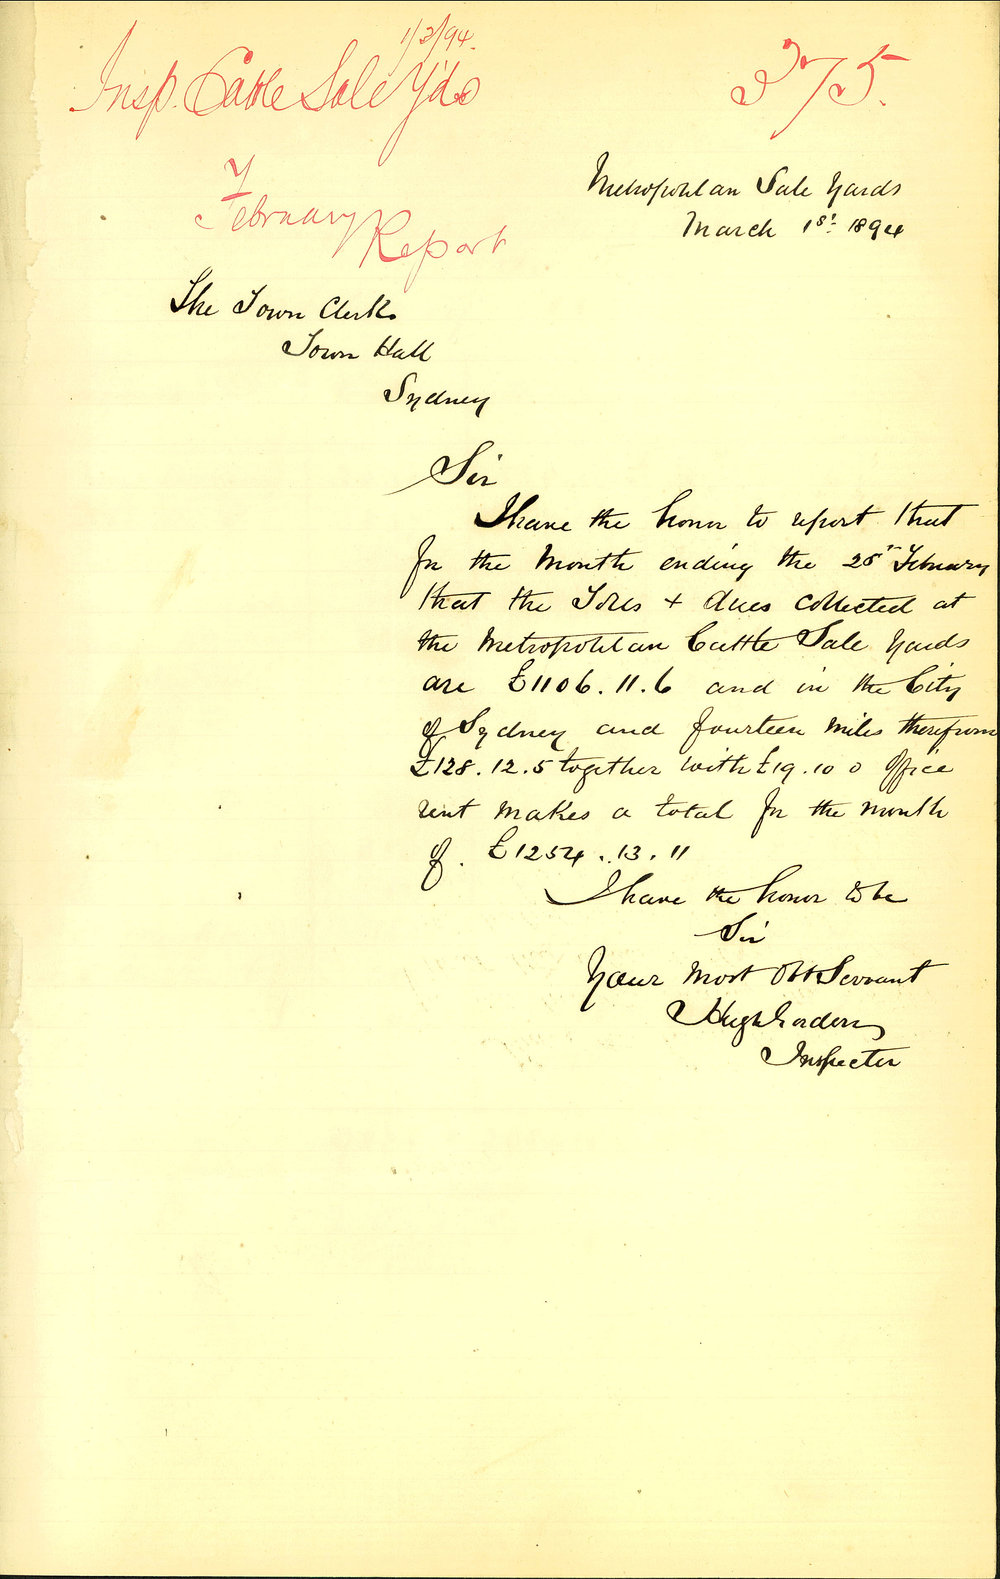 1/3/94.
Insp. Cattle Sale Yds
375.
February
Report
Metropolitan Sale Yards
March 1st 1894
The Town Clerk
Town Hall
Sydney
Sir
I have the honor to report that
for the Month ending the 28th February
that the Tolls + dues collected at
the Metropolitan Cattle Sale Yards
are £1106.11.6 and in the City
of Sydney and fourteen miles therefrom
£128.12.5 together with £19.10 0 office
rent makes a total for the month
of. £1254.13.11
I have the honor to be
Sir
Your Most Obt Servant
Hugh Gordon
Inspector